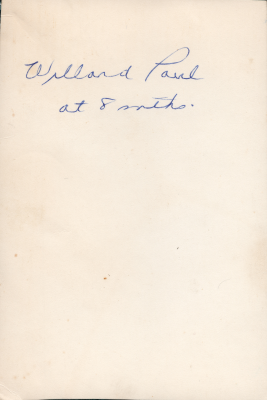 Willard Paul
at 8 mths.